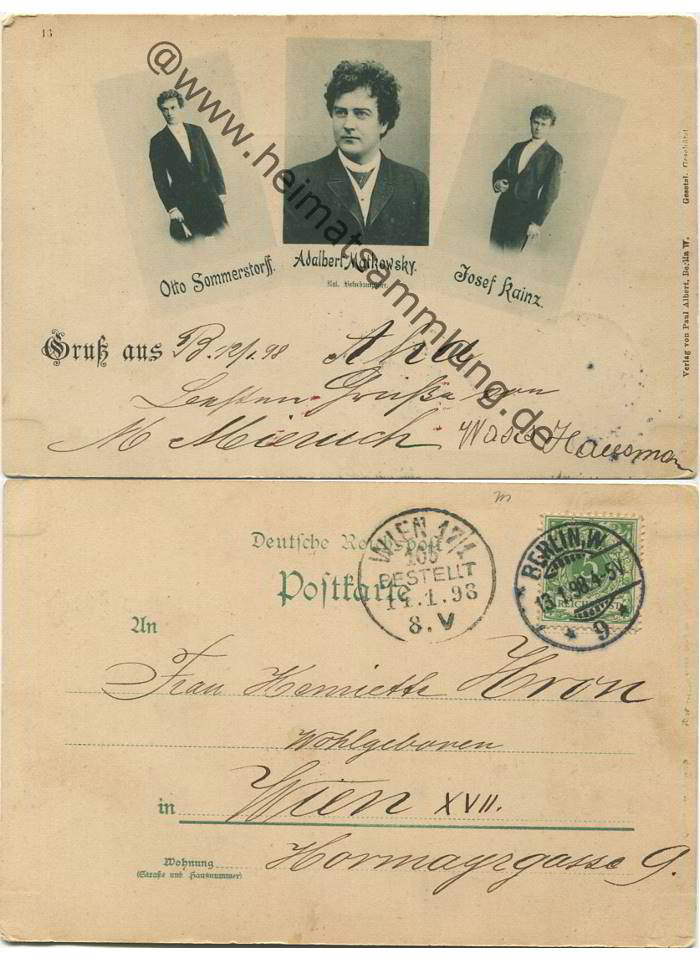 13
@www.heimatsammlung.de
Otto Sommerstorff.
Adalbert Matkowsky.
Kgl. Hofschauspieler.
Josef Kainz.
Verlag von Paul Albert, Berlin W. Gesetzl. Geschützt.
Gruß aus B. 12/1. 98
Besten Grüße von
M
Deutsche Reichspost
Postkarte
WIEN 17/1
105
BESTELLT
14.1.98
8.V
BERLIN, W.
13.1.98.4-5N.
9
REICHSPOST
An
Frau Henriette Hron
Wohlgeboren
in Wien XVII.
Wohnung Hormayrgasse 9.
(Straße und Hausnummer)